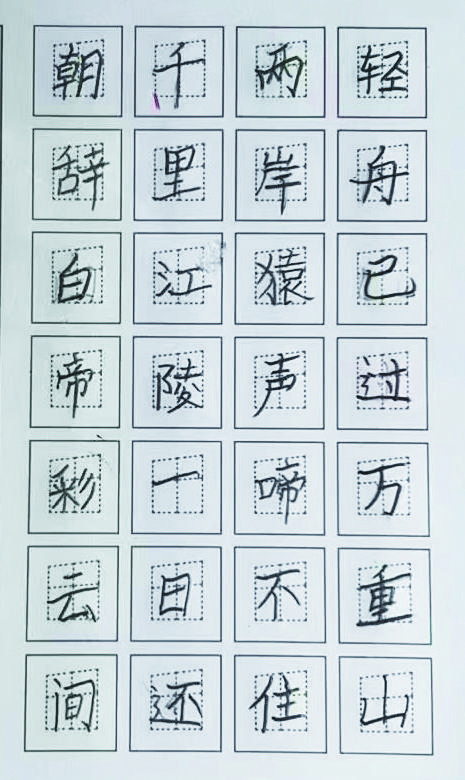 朝辞白帝彩云间
千里江陵十日还
两岸猿声啼不住
轻舟已过万重山